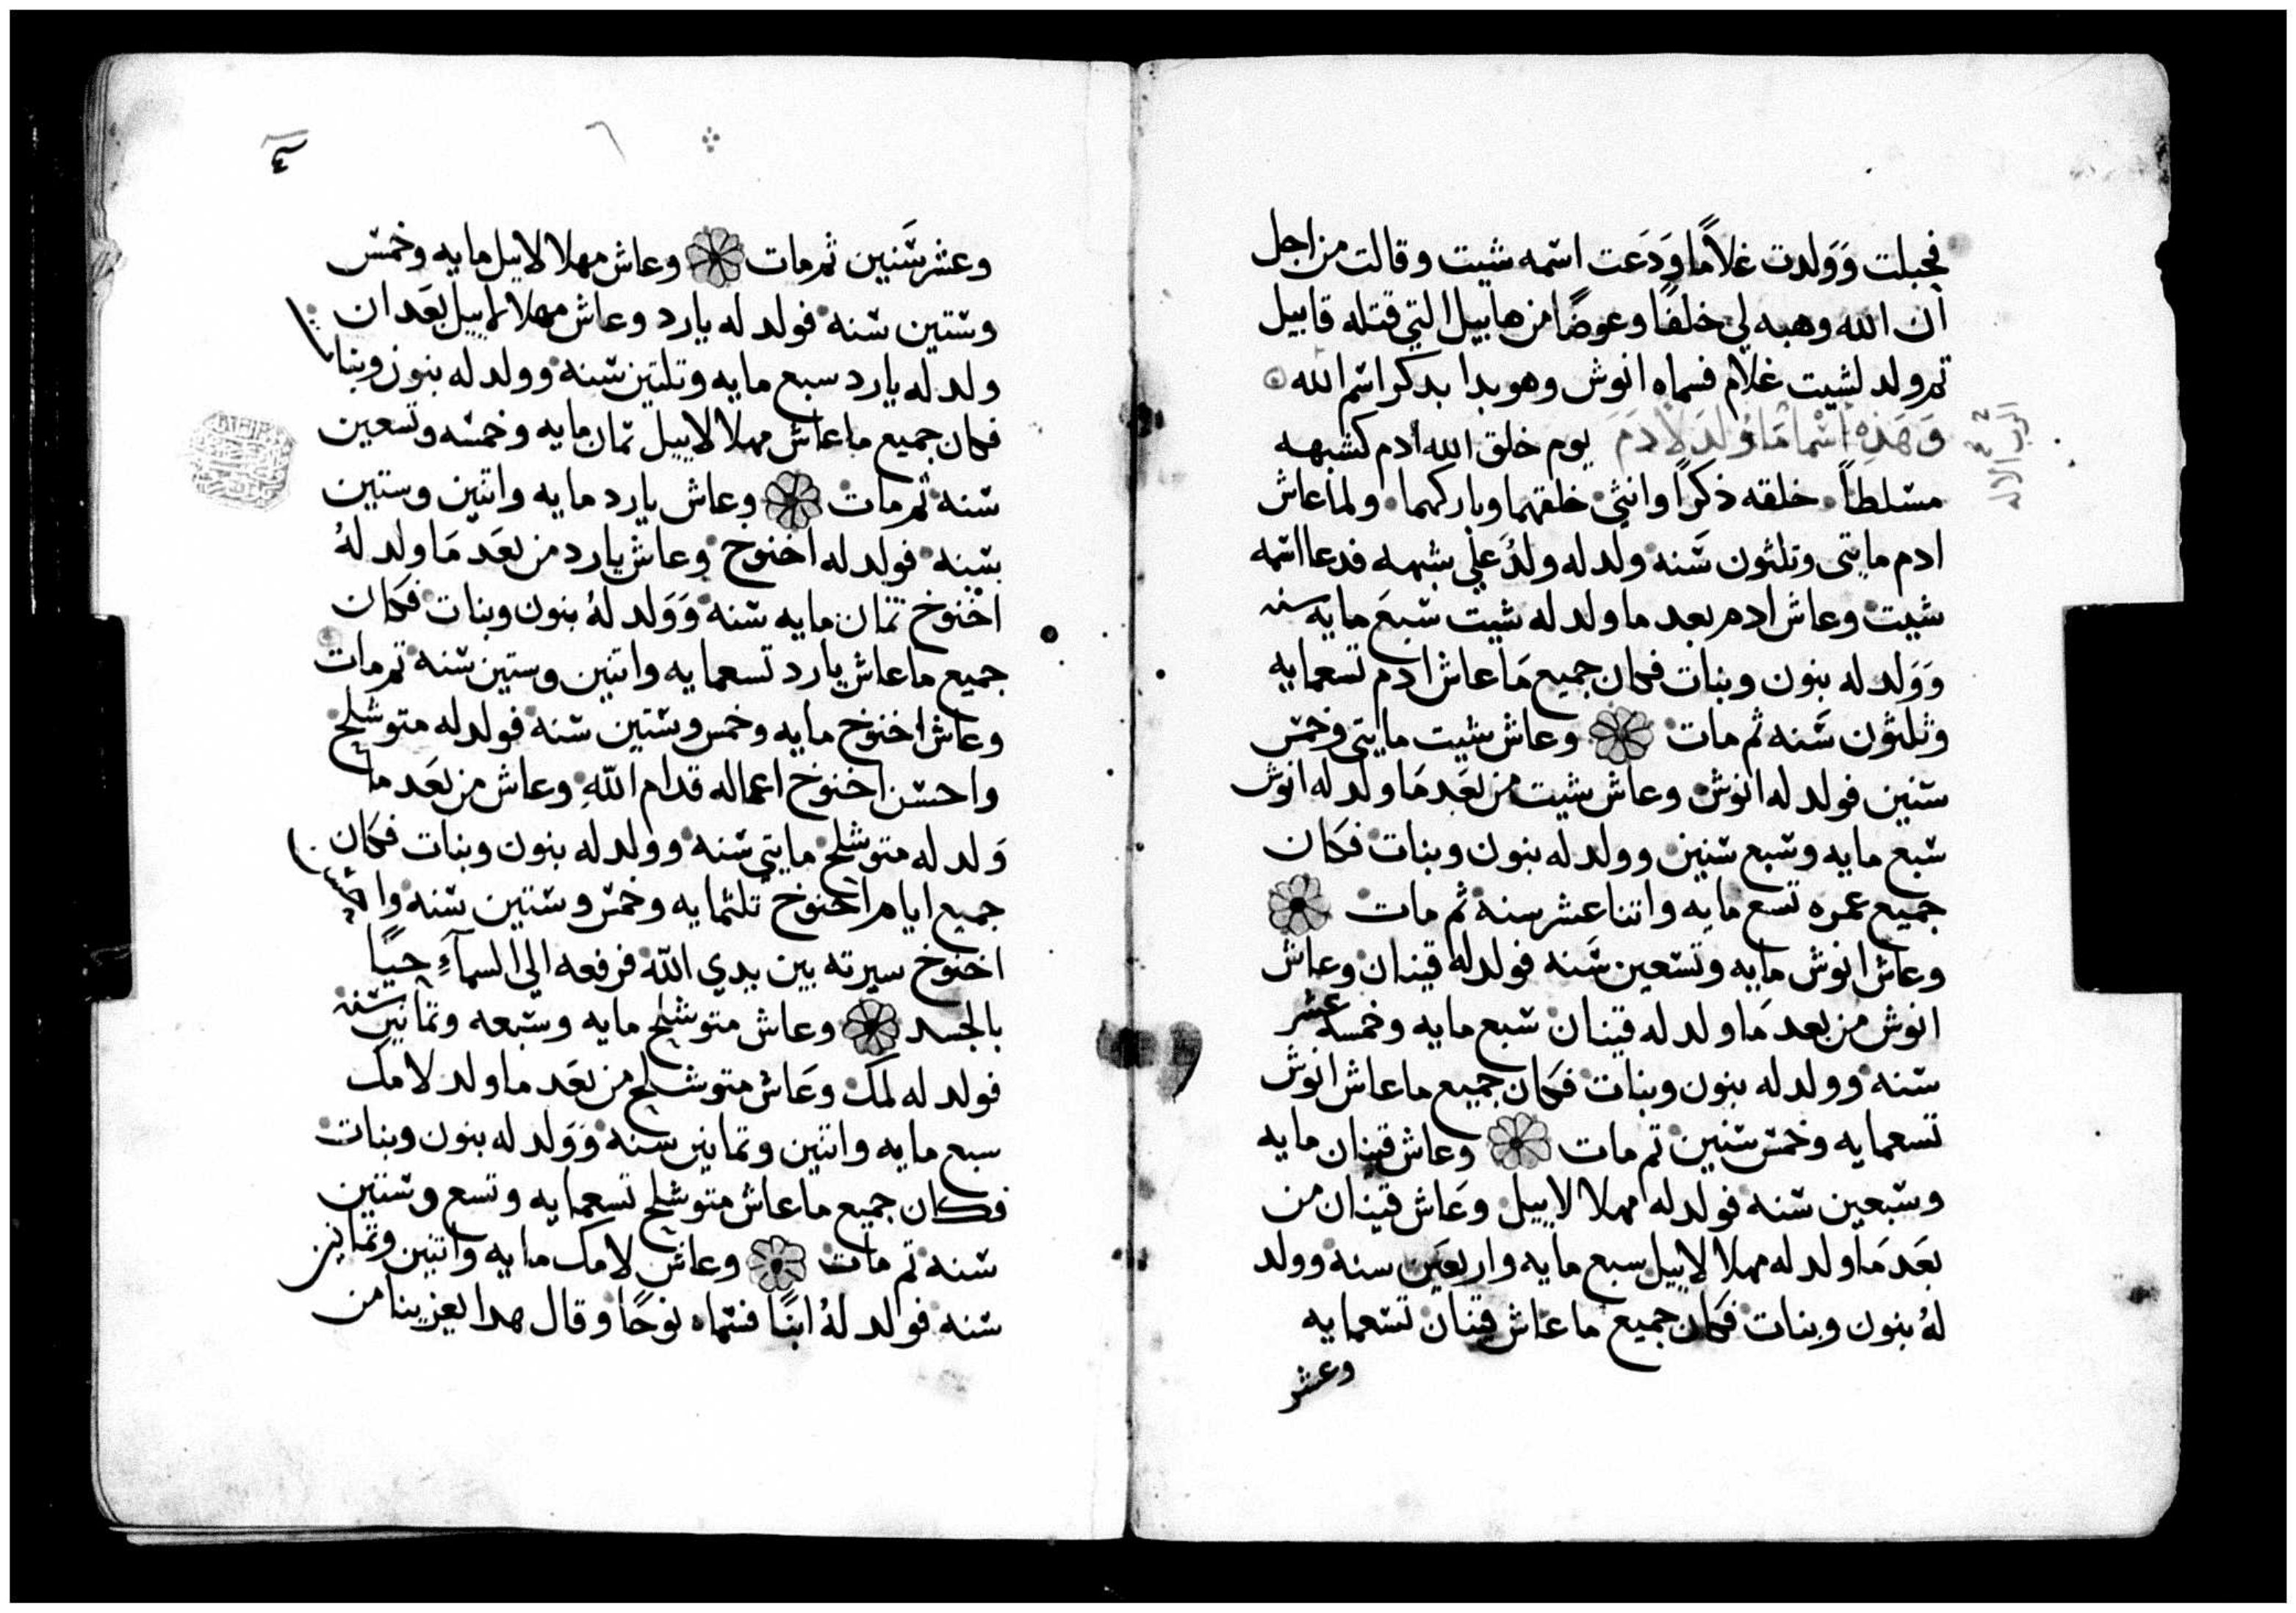 فحبلت وَوَلدت غلاماً وَدَعت اسمه شيت وقالت من اجل
ان الله وهبه لي خلفًا وعوضًا من هابيل التي قتله قابيل
تم ولد لشيت غلام فسماه انوش وهو بدا بدكر اسم الله
وَهَذِه اسْما مَا وُلدَ لاَدَمَ يوم خلق الله ادم كشبهه
مسلطاً خلقه ذكراً وانثى خلقهما وباركهما ولما عاش
ادم مايتى وتلثون سَنه ولد له ولدُ علي شبهه فدعا اسمه
شيت وعاش ادم بعد ما ولد له شيت سبعَ مايه سنه
وَوَلد له بنون وبنات فكان جميع مَا عاش ادم تسعمايه
وثلثون سَنه ثم مات وعاش شيت مايتى وخمس
سنين فولد له انوش وعاش شيت من بَعَد مَا ولد له انوش
سبع مايه وسبع سنين وولد له بنون وبنات فكان
جميع عمره تسع مايه واتنا عشر سنه ثم مات
وعاش انوش مايه وتسعين سَنه فولد له قينان وعاش
انوش من بعد مَا ولد له قينان سبع مايه وخمسة عشر
سنه وولد له بنون وبنات فكان جميع ما عاش انوش
تسعمايه وخمس سنين تم مات وعاش قينان مايه
وسبعين سنه فولد له مهلالاييل وعَاش قينان من
بعَد مَا ولد له مهلالاييل سبع مايه واربعَين سنه وولد
لهُ بنون وبنات فكان جميع ما عاش قينان تسعمايه
وعشر
٤
وعشر سَنين ثم مات وعاش مهلالاييل مايه وخمس
وستين سنه فولد له يارد وعاش مهلالاييل بعَد ان
ولد له يارد سبع مايه وتلتين سنه وولد له بنون وبنات
فكان جميع ما عاش مهلالاييل تمان مايه وخمسه وتسعين
سَنه تم مات وعاش يارد مايه واتنين وستين
سنه فولد له اخنوخ وعاش يارد من بعَد مَا ولد لهُ
اخنوخ تمان مايه سنه وَوَلد لهُ بنون وبنات فكان
جميع ما عاش يارد تسعمايه واتنين وستين سنه تم مات
وعاش اخنوخ مايه وخمس وستين سنه فولد له متوشلح
واحسن اخنوخ اعماله قدام اللّهِ وعاش من بعَد ما
وَلد له متوشلح مايتي سنه وولد له بنون وبنات فكان
جميع ايام اخنوخ تلثمايه وخمس وستين سنه واحسن
اخنوخ سيرته بين يدي الله فرفعه الي السمآءِ حيًا
بالجسد وعاش متوشلح مايه وسبعه وتمانين سنه
فولد له لمك وعَاش متوشلح من بعَد ما ولد لامك
سبع مايه واتنين وتمانين سنه وَوَلد له بنون وبنات
فكان جميع ما عاش متوشلح تسعمايه وتسع وستين
سنه تم مات وعاش لامك مايه واتنين وتمانين
سنه فولد لهُ ابنًا فسماه نوحًا وقال هدا يعزينا من